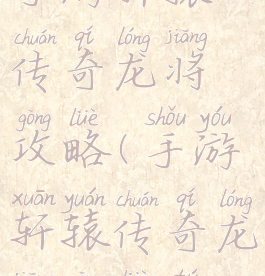 chuán qí lóng jiāng
传奇龙将
gōng lüè shǒu yóu
攻略(手游
xuān yuán chuán qí lóng
轩辕传奇龙